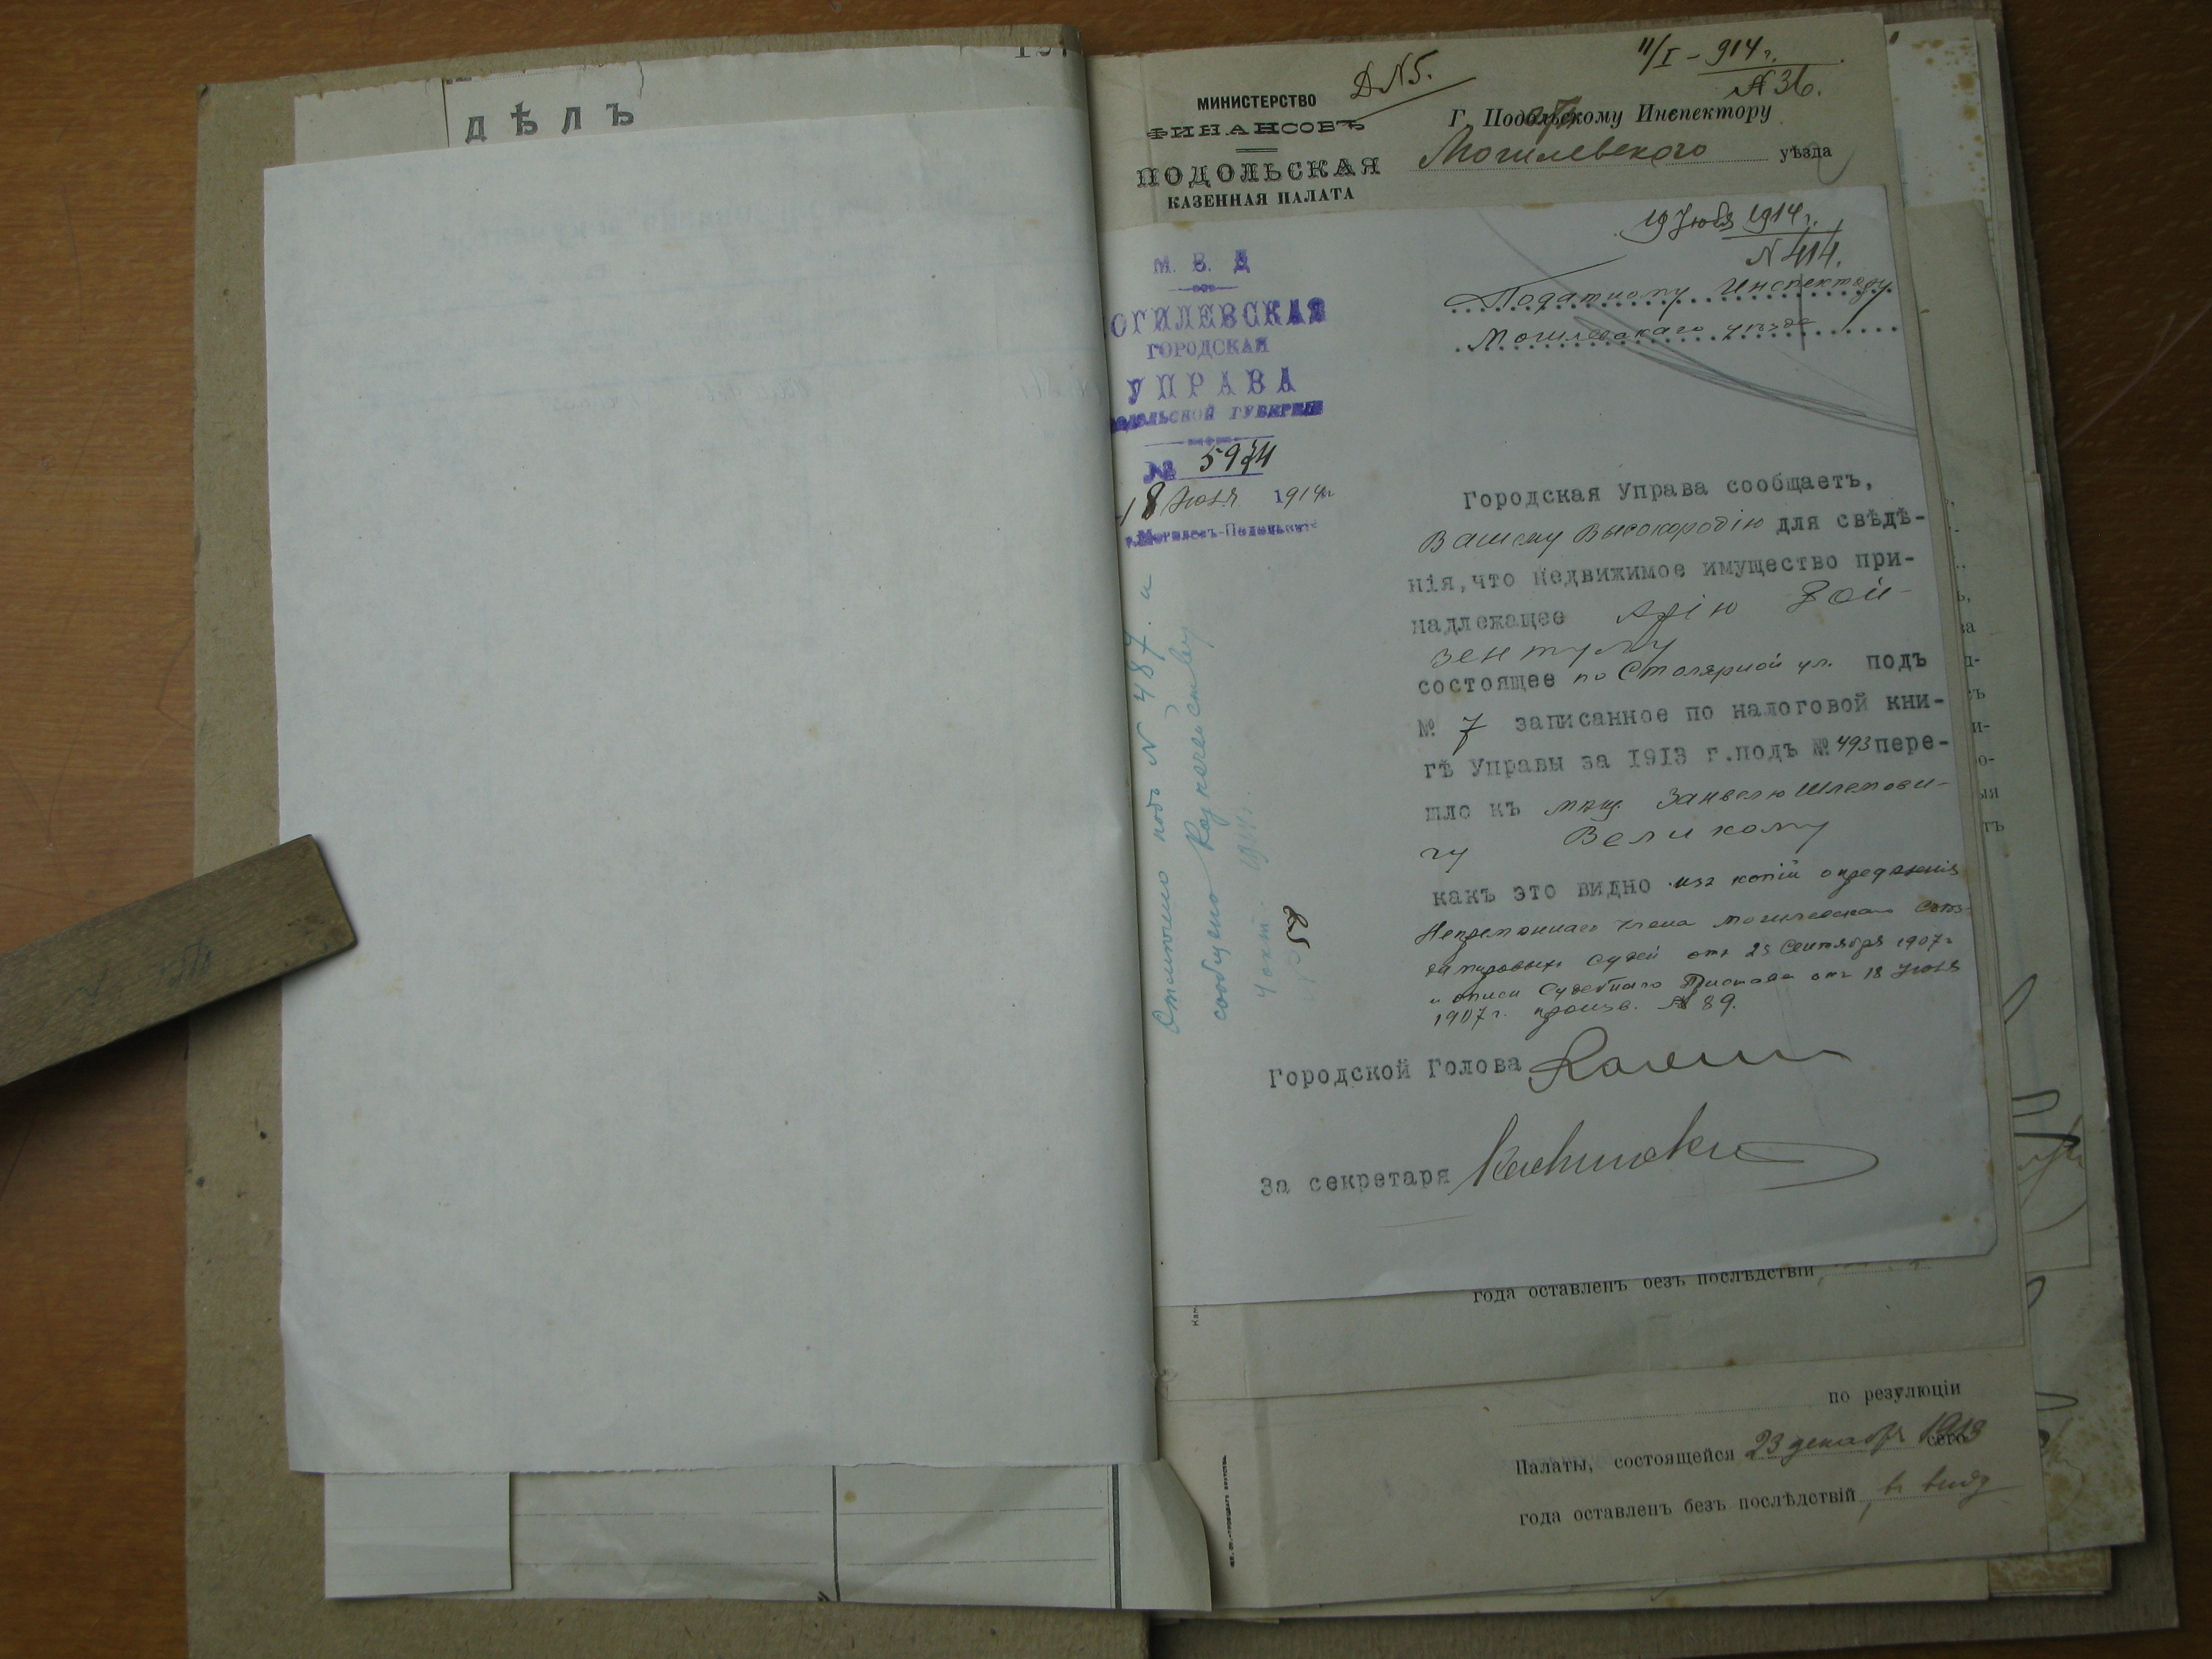 ДѢЛЪ
МИНИСТЕРСТВО
ФИНАНСОВЪ
ПОДОЛЬСКАЯ
КАЗЕННАЯ ПАЛАТА
Д N 5.
11/I - 914 г.
N 36.
Г. Подольскому Инспектору
Могилевского уѣзда
М. В. Д
ОГИЛЕВСКАЯ
ГОРОДСКАЯ
УПРАВА
ПОДОЛЬСКОЙ ГУБЕРНІИ
№
18 Іюля 1914 г.
г. Могилевъ-Подольскій
19 Іюля 1914 г.
N 414.
Податному Инспектору
Могилевскаго уѣзда
Городская Управа сообщаетъ,
Вашему Высокородію для свѣдѣ-
нія, что недвижимое имущество при-
надлежащее Арію Вой-
зентулу
состоящее по Столярной ул. подъ
№ 7 записанное по налоговой кни-
гѣ Управы за 1913 г. подъ № 493 пере-
шло къ мѣщ. Занвелю Шлемови-
чу Великому
какъ это видно изъ копіи опредѣленія
Непремѣннаго Члена Могилевскаго Съѣз-
да мировыхъ Судей отъ 25 Сентября 1907 г.
и описи Судебнаго Пристава отъ 18 Іюля
1907 г. произв. N 89.
Городской Голова
За секретаря
подъ N 487. и
сообщено Казначейству
4 окт. 1914 г.
года оставленъ безъ послѣдствій
по резулюціи
Палаты, состоящейся 23 декабря 1913 сего
года оставленъ безъ послѣдствій, въ виду